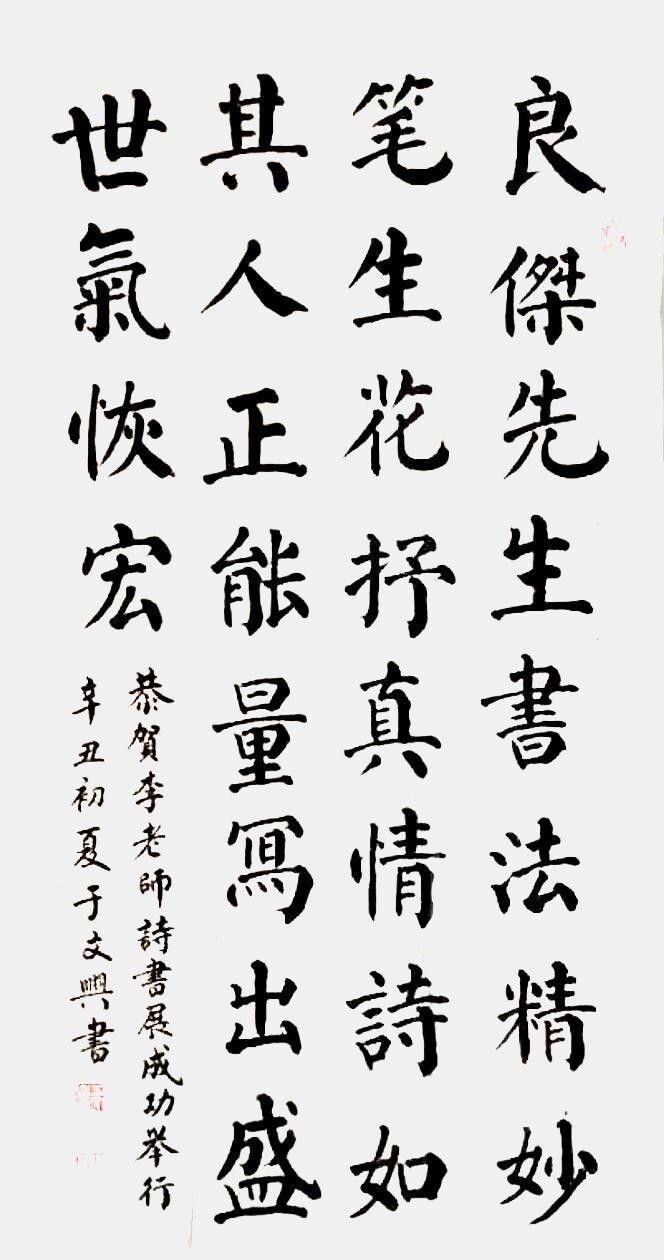 良傑先生書法精妙
笔生花抒真情詩如
其人正能量寫出盛
世氣恢宏
恭賀李老師詩書展成功举行
辛丑初夏于文興書